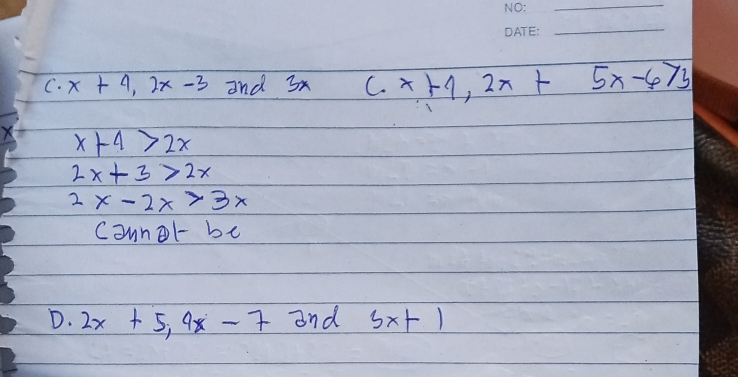 NO:
DATE:
C. x + 4, 2x - 3 and 3x
C. x + 4, 2x + 5x - 6 > 3
x + 4 > 2x
2x + 3 > 2x
2x - 2x > 3x
Cannot be
D. 2x + 5, 4x - 7 and 3x + 1